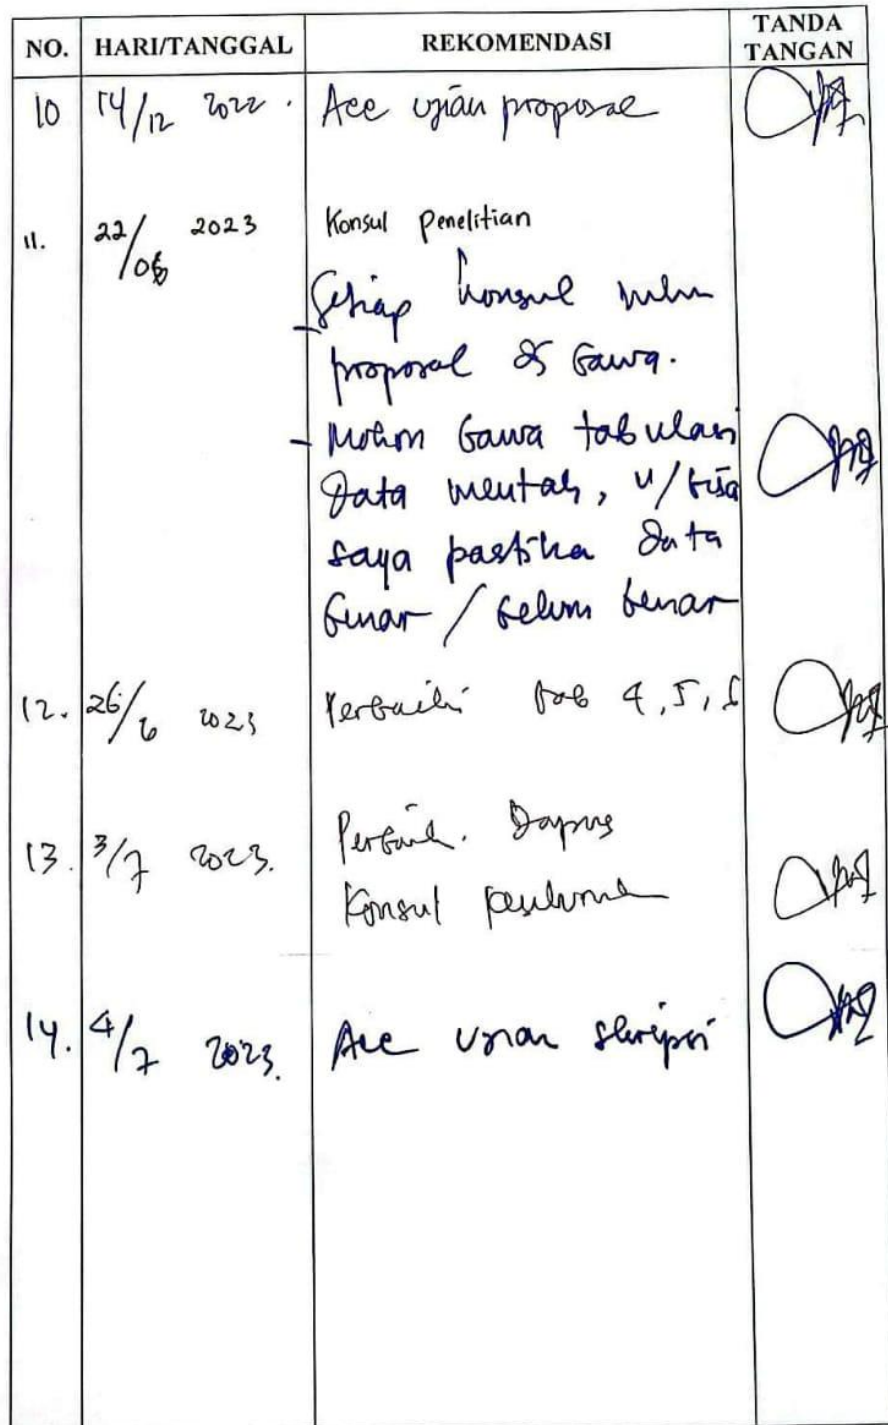 NO. HARI/TANGGAL REKOMENDASI TANDA TANGAN
10 14/12 2022. Acc ujian proposal
11. 22/06 2023 Konsul Penelitian
- Setiap konsul
proposal di bawa.
- Mohon bawa tabulasi
data mentah, u/ bisa
saya pastika data
benar / belum benar
12. 26/6 2023 Perbaiki bab 4, 5, 6
13. 3/7 2023. Perbaik. Dapus
Konsul
14. 4/7 2023. Acc ujian skripsi